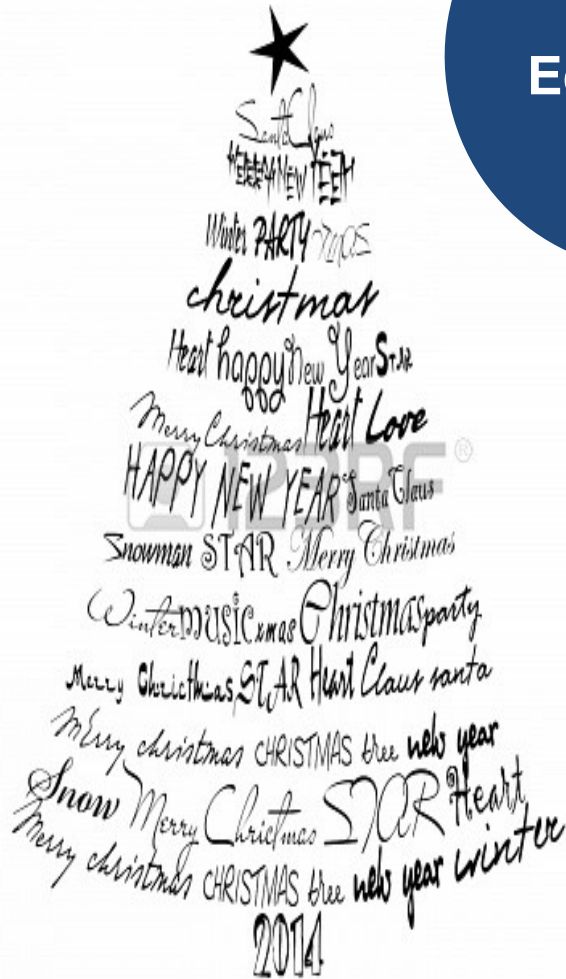 E
Santa Claus
NEW YEAR
Winter PARTY xmas
christmas
Heart happy New Year STAR
Merry Christmas Heart Love
HAPPY NEW YEAR Santa Claus
123RF®
Snowman STAR Merry Christmas
Winter music xmas Christmas party
Merry Chricthias STAR Heart Claus santa
Merry christmas CHRISTMAS tree new year
Snow Merry Chrictmas STAR Heart
Merry christmas CHRISTMAS tree new year winter
2014